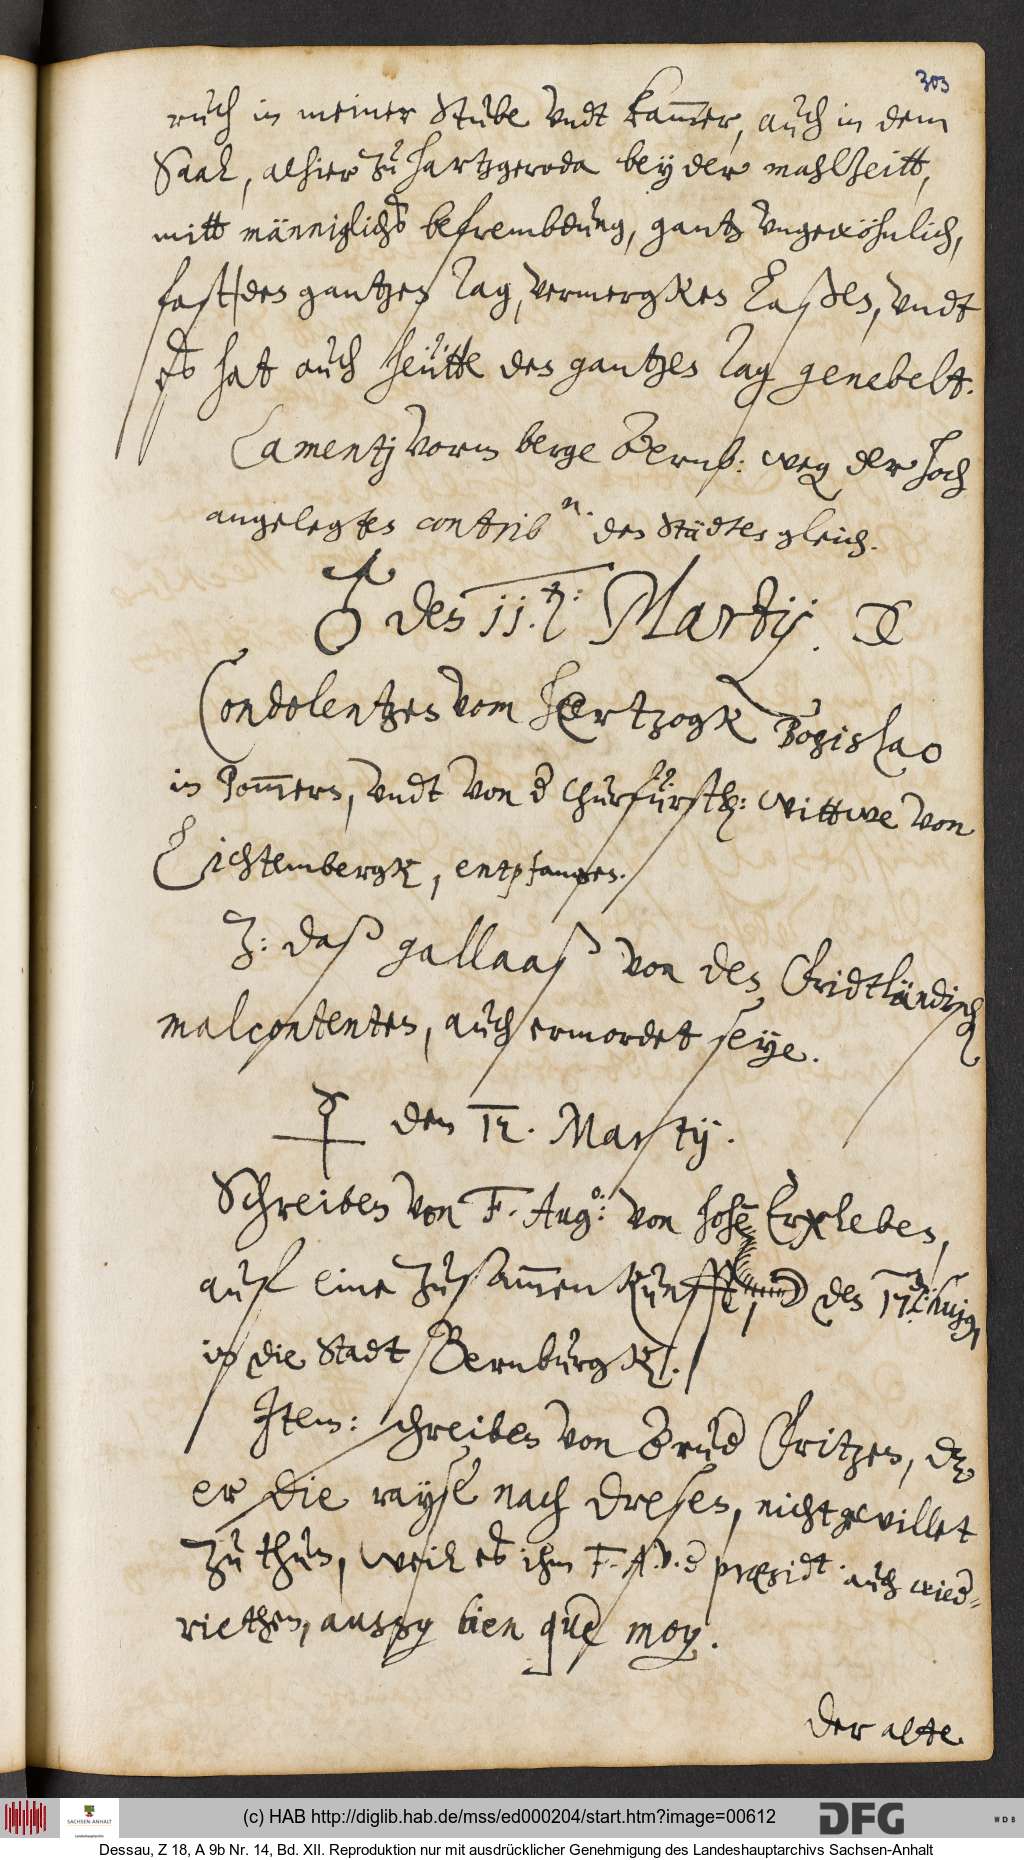 303
ruch in meiner Stube vndt kammer, auch in dem
Saal, alhier zu Hartzgeroda bey der mahlzeitt,
mitt männiglichs befrembdung, gantz vngewöhnlich,
fast den gantzen Tag, vermergken laßen, vndt
es hat auch heütte den gantzen Tag genebelt.
Lamentj vorm berge Bernb: weg der hoch
angelegten contrib n. den Städten gleich.
♂ den 11. Martij.
Condolentzen vom Hertzogk Bogislao
in Pommern, vndt von d Churfürstl: Wittwe von
Lichtembergk, entpfangen.
Z: daß gallaaß von den Fridtländisch
malcontenten, auch ermordet seye.
☿ den 12. Martij.
Schreiben von F. Aug: von hohen Erxleben,
auf eine zusammenkunfft, den 17. huius
in die Stadt Bernburgk.
Item: schreiben von Brud Fritzen, dz
er die rayse nach Dresen, nicht gewillet
zu thun, weil es ihm F. A. v. d præsidt. auch wied-
riethen, aussy bien que moy.
Der alte
(c) HAB http://diglib.hab.de/mss/ed000204/start.htm?image=00612
SACHSEN-ANHALT
DFG
WDB
Dessau, Z 18, A 9b Nr. 14, Bd. XII. Reproduktion nur mit ausdrücklicher Genehmigung des Landeshauptarchivs Sachsen-Anhalt